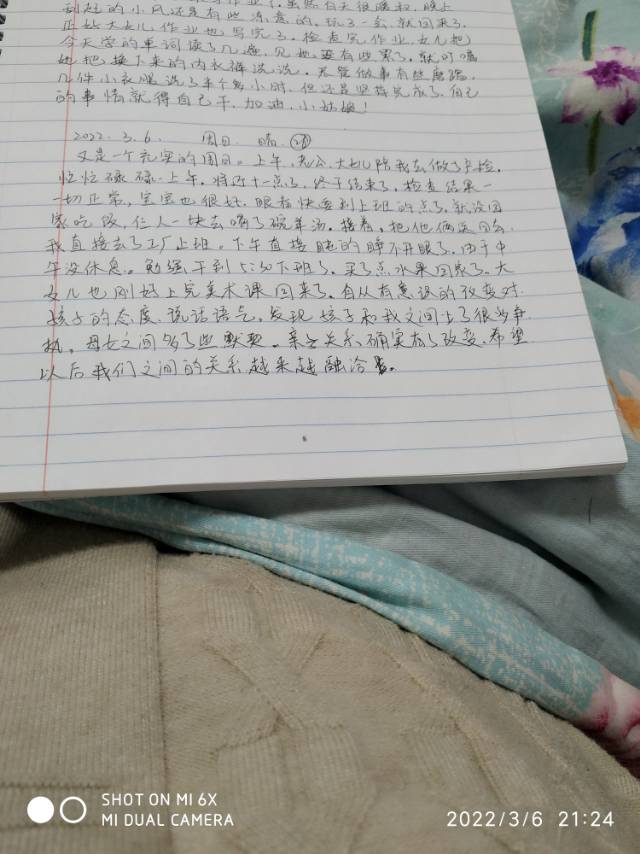 到赶的小风还是有些凉意的。玩了一会,就回来了。
正好大女儿作业也写完了。检查完作业,女儿把
今天学的单词读了几遍。见她要有些累了。就叮嘱
她把换下来的内衣裤洗洗。尽管做事有些磨蹭,
几件小衣服洗了半个多小时,但还是坚持完成了。自己
的事情就得自己干,加油,小姑娘!
2022.3.6. 周日 晴
又是一个充实的周日。上午,老公、大女儿陪我去做了产检,
忙忙碌碌一上午。将近十一点了,终于结束了,检查结果一
切正常,宝宝也很好。眼看快要到上班的点了,就没回
家吃饭,仨人一块去喝了碗羊汤。接着,把他俩送回家,
我直接去了工厂上班。下午直接瞌的睁不开眼了,由于中
午没休息。勉强干到5:30下班了,买了点水果回家了。大
女儿也刚好上完美术课回来了。自从有意识的改变对
孩子的态度、说话语气,发现孩子和我之间少了很多争
执,母女之间多了些默契。亲子关系确实有了改变,希望
以后我们之间的关系越来越融洽。
SHOT ON MI 6X
MI DUAL CAMERA
2022/3/6 21:24